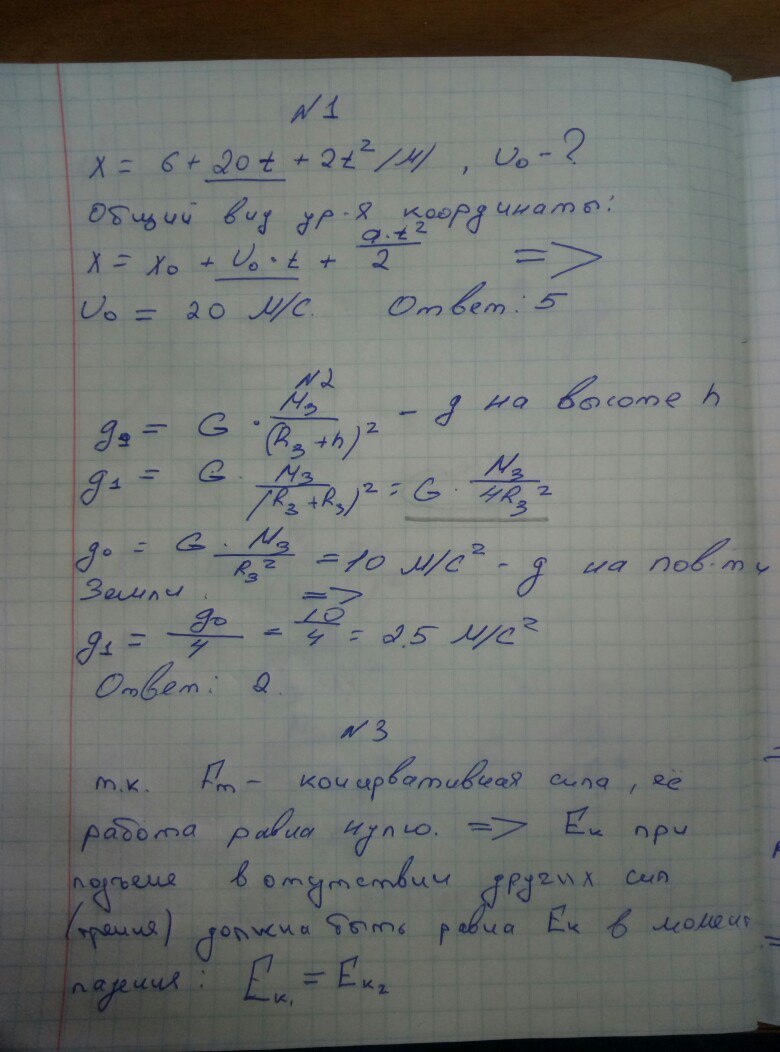 №1
x = 6 + 20t + 2t² /м/ , υ₀ - ?
Общий вид ур-я координаты:
x = x₀ + υ₀·t + a·t²/2 =>
υ₀ = 20 м/с. Ответ: 5
№2
g₁ = G · M₃/(R₃+h)² - g на высоте h
g₁ = G · M₃/(R₃+R₃)² = G · M₃/4R₃²
g₀ = G · M₃/R₃² = 10 м/с² - g на пов-ти
Земли. =>
g₁ = g₀/4 = 10/4 = 2.5 м/с²
Ответ: 2.
№3
т.к. Fт - консервативная сила, её
работа равна нулю. => Eк при
подъеме в отсутствии других сил
(трения) должна быть равна Eк в момент
падения: Eк₁ = Eк₂